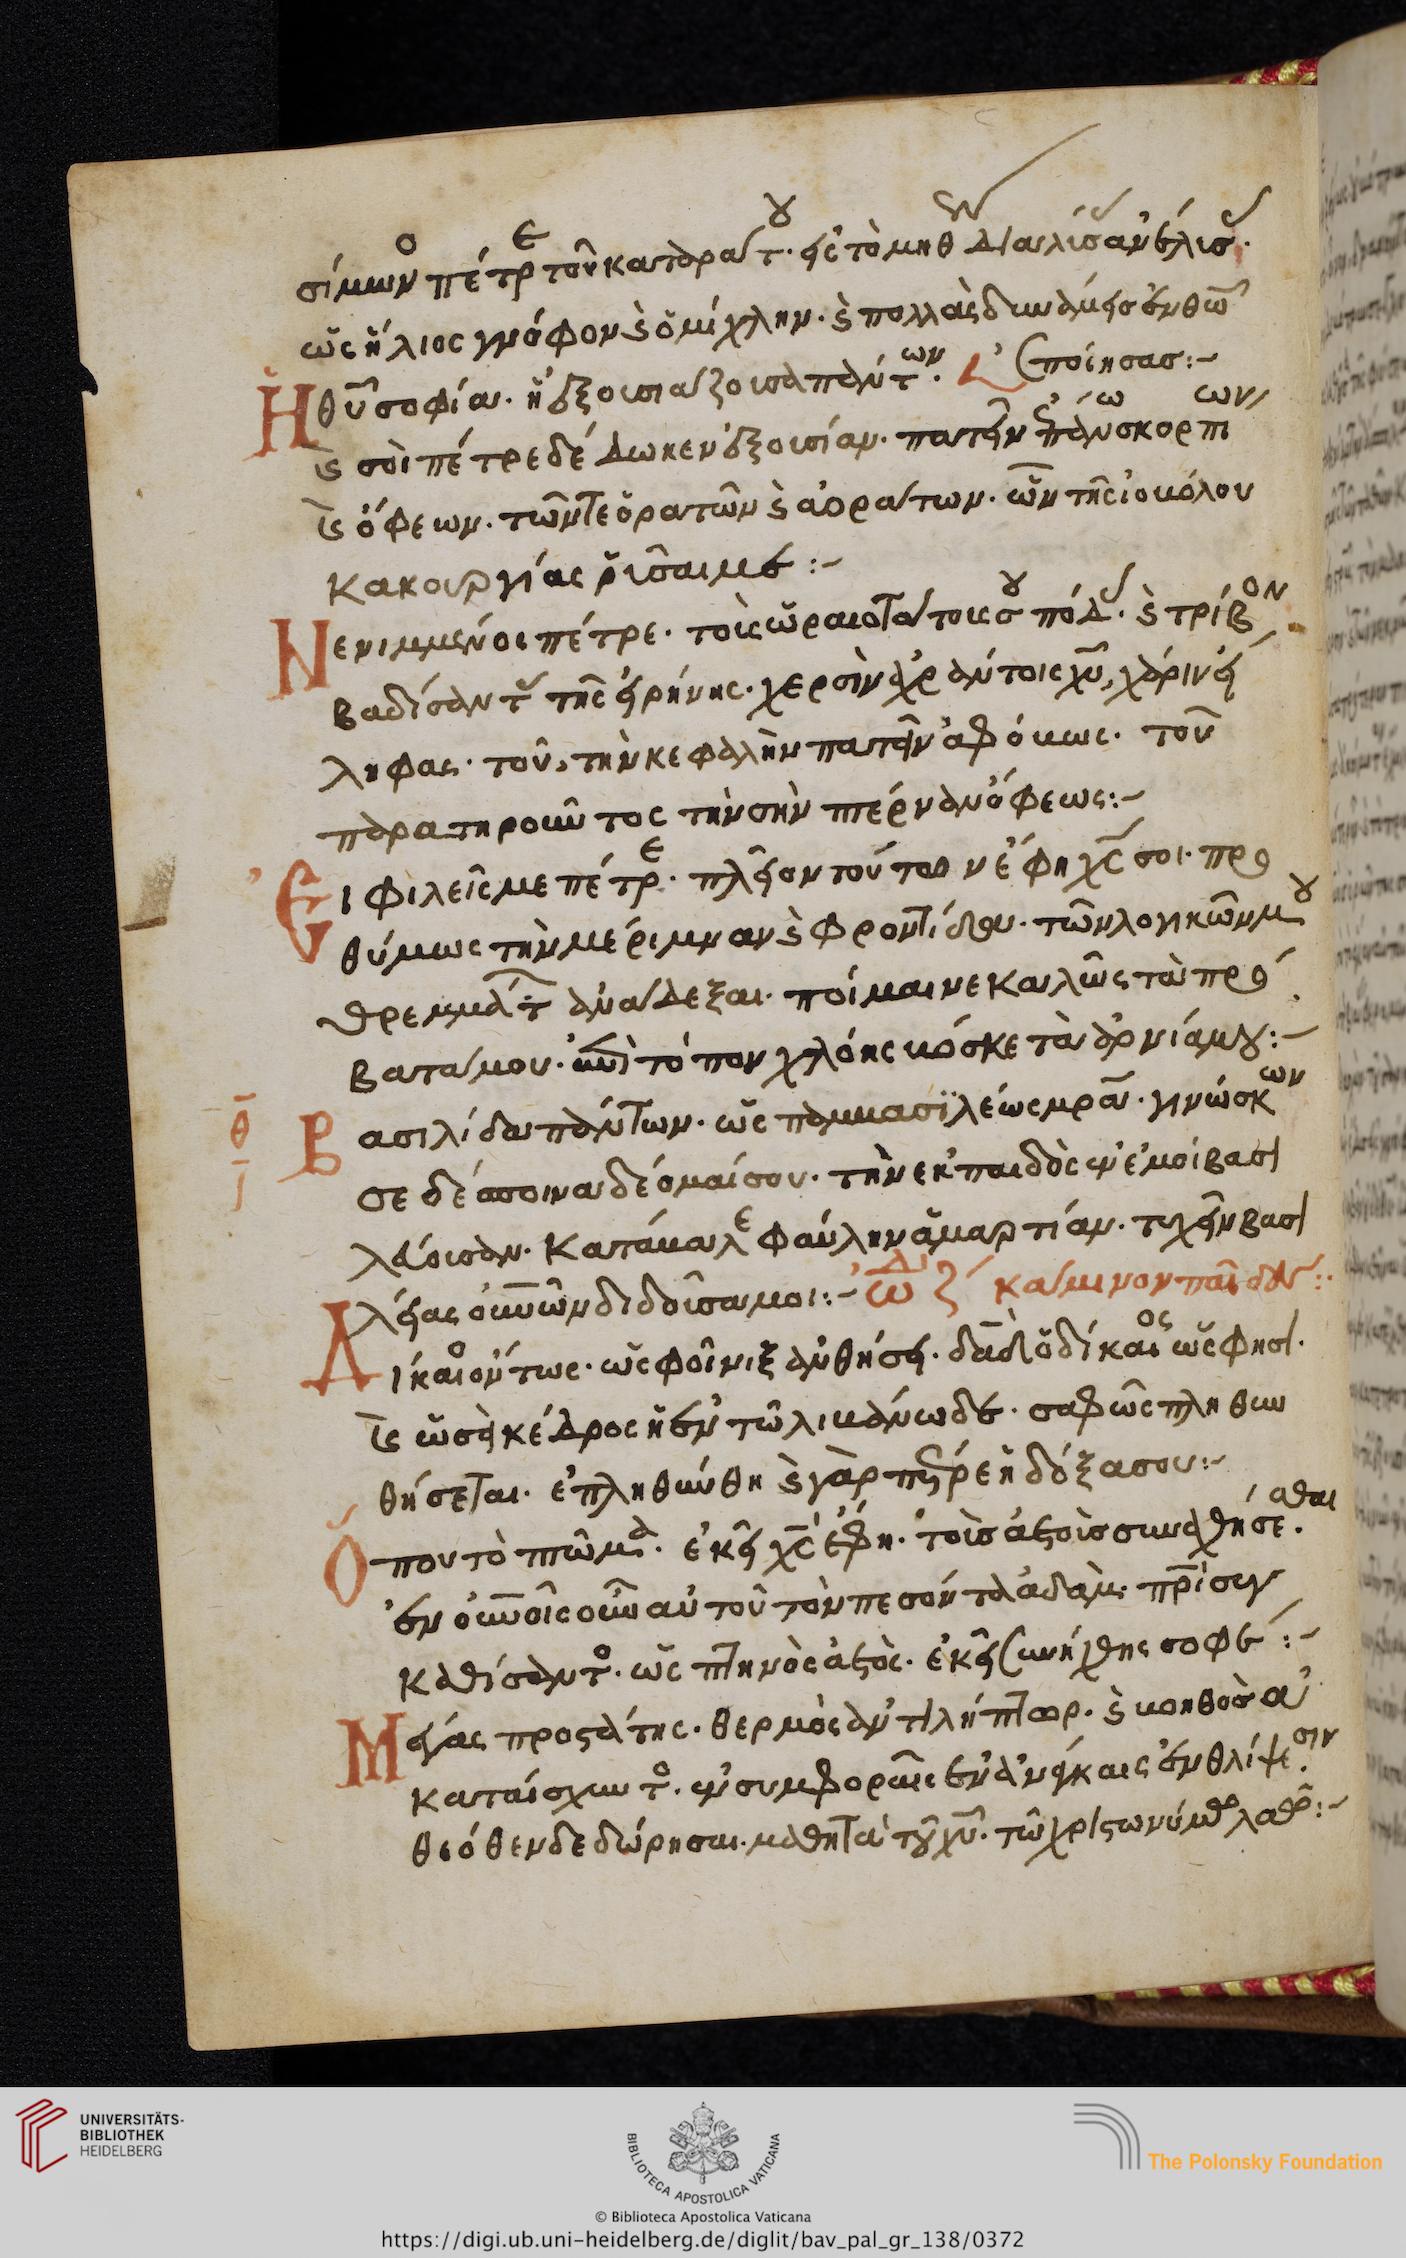 σίμων πέτρε τοῦ κατὰ
ὡς ἥλιος γνόφον ὁμίχλην πολλὰς
Ἡ θῦ σοφία ἡ ἐξουσιάζουσα πάντων ποίησας
σοὶ πέτρε δέδωκεν ἐξουσίαν πατεῖν ἐπάνω σκορπίων
ὄφεων τῶν τε ὁρατῶν ἀοράτων ὧν τῆς ἰοβόλου
κακουργίας ῥῦσαί με
Νενιμμένοις πέτρε τοῖς ὡραιοτάτοις σου ποσὶ τρίβον
βαδίσαντι τῆς εἰρήνης χερσὶν ἀχράντοις χῦ χάριν εἴ
ληφας τοῦ τὴν κεφαλὴν πατεῖν ἀφόβως τοῦ
παρατηροῦντος τὴν σὴν πτέρναν ὄφεως
Εἰ φιλεῖς με πέτρε πλεῖον τούτων ἔφη χς σοι προ
θύμως τὴν μέριμναν φροντίδα τῶν λογικῶν μου
θρεμμάτων ἀνάδεξαι ποίμαινε καλῶς τὰ πρό
βατά μου ἐπὶ τόπον χλόης βόσκε τὰ ἀρνία μου
θ
Βασιλίδα πάντων ὡς παμβασιλέως μρα γινώσκων
σε δέσποινα δέομαί σου τὴν ἐκ παιδὸς ἐν ἐμοὶ βασι
λεύουσαν κατάβαλε φαύλην ἁμαρτίαν τυχεῖν βασι
λείας οὐνῶν δίδου μοι ᾠδ ζ κάμινον παῖδες
Δίκαιο ὄντως ὡς φοῖνιξ ἀνθήσει δαδ ὁ δίκαιος ὥς φησι
ὡσεὶ κέδρος ἡ ἐν τῷ λιβάνῳ δὲ σαφῶς πληθυν
θήσεται ἐπληθύνθη γὰρ πέτρε ἡ δόξα σου
Ὅπου τὸ πτῶμα ἐκεῖ χς ἔφη τοῖς ἀετοῖς συναχθήσεσθαι
ἐν οὐνοῖς οὖν αὐτοῦ τὸν πεσόντα ἀδὰμ πρι συγ
καθίσαντος ὡς πτηνὸς ἀετὸς ἐκεῖ συνήχθης σοφέ
Μ προστάτης θερμὸς ἀντιλήπτωρ βοηθὸς ἀ
καταίσχυντος ἐν συμφοραῖς ἐν ἀνάγκαις ἐν θλίψεσιν
θεόθεν δεδώρησαι μαθητὰ τοῦ χῦ τῷ χριστωνύμῳ λαῷ
UNIVERSITÄTS-
BIBLIOTHEK
HEIDELBERG
BIBLIOTECA APOSTOLICA VATICANA
The Polonsky Foundation
© Biblioteca Apostolica Vaticana
https://digi.ub.uni-heidelberg.de/diglit/bav_pal_gr_138/0372